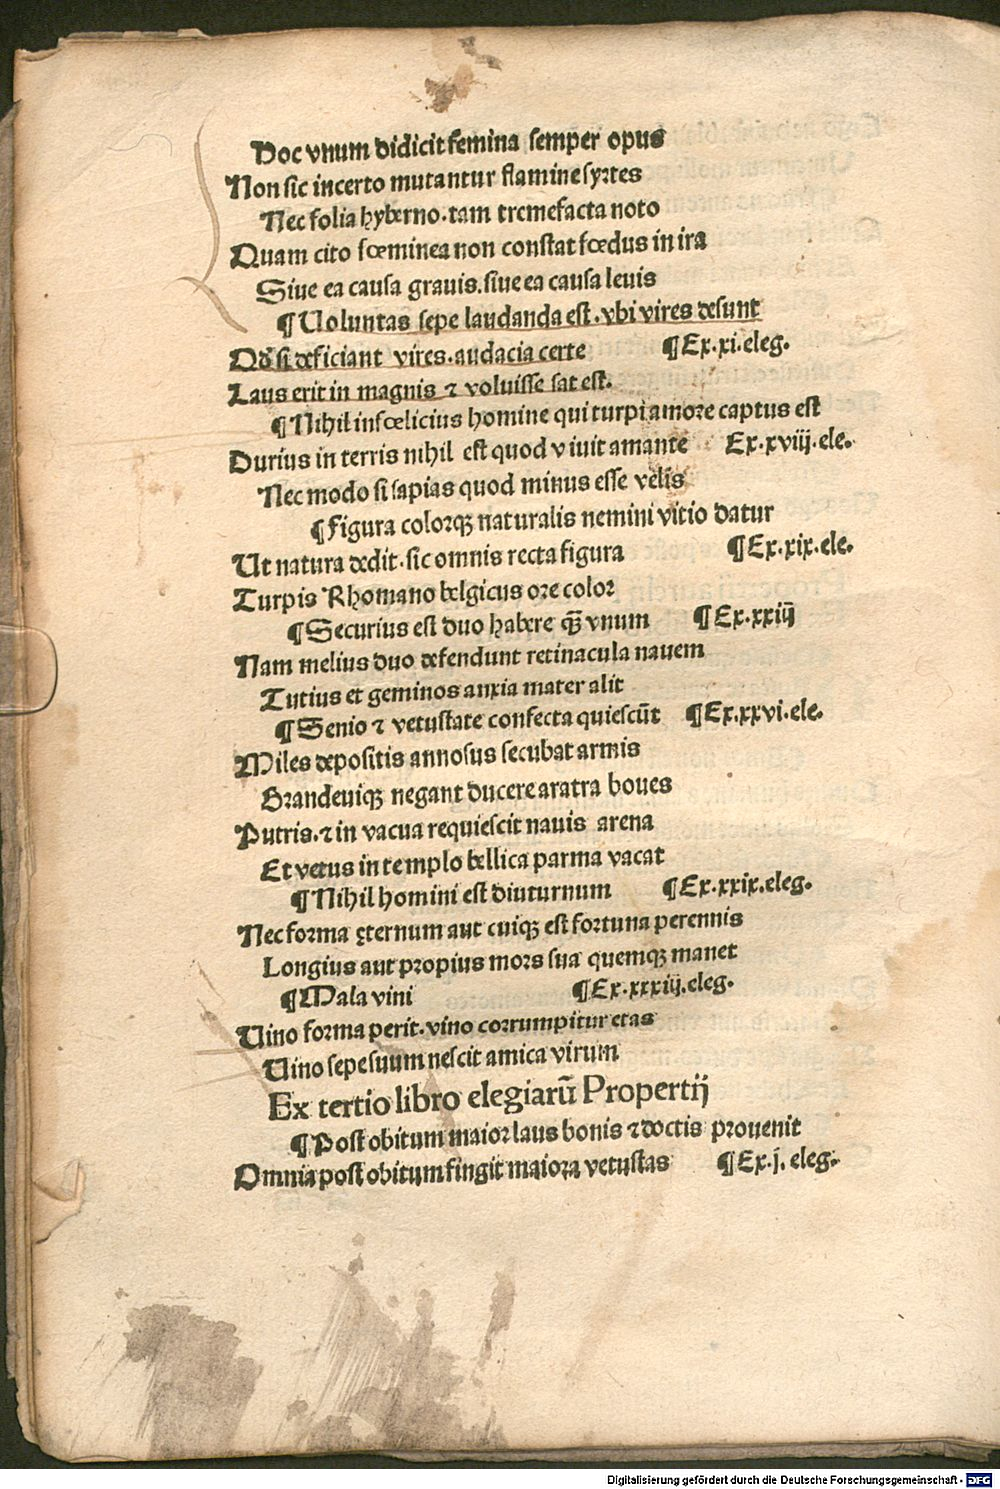 Hoc vnum didicit femina semper opus
Non sic incerto mutantur flamine syrtes
Nec folia hyberno.tam tremefacta noto
Quam cito fœminea non constat fœdus in ira
Siue ea causa grauis.siue ea causa leuis
¶Uoluntas sepe laudanda est.vbi vires desunt
Qđ si deficiant vires.audacia certe ¶Ex.xi.eleg.
Laus erit in magnis ⁊ voluisse sat est.
¶Nihil infœlicius homine qui turpi amore captus est
Durius in terris nihil est quod viuit amante Ex.xviij.ele.
Nec modo si sapias quod minus esse velis
¶Figura colorqꝫ naturalis nemini vitio datur
Ut natura dedit.sic omnis recta figura ¶Ex.xix.ele.
Turpis Rhomano belgicus ore color
¶Securius est duo habere qꝫ̄ vnum ¶Ex.xxiij
Nam melius duo defendunt retinacula nauem
Tutius et geminos anxia mater alit
¶Senio ⁊ vetustate confecta quiescūt ¶Ex.xxvi.ele.
Miles depositis annosus secubat armis
Grandeuiqꝫ negant ducere aratra boues
Putris.⁊ in vacua requiescit nauis arena
Et vetus in templo bellica parma vacat
¶Nihil homini est diuturnum ¶Ex.xxix.eleg.
Nec forma ęternum aut cuiqꝫ est fortuna perennis
Longius aut propius mors sua quemqꝫ manet
¶Mala vini ¶Ex.xxxiij.eleg.
Uino forma perit.vino corrumpitur etas
Uino sepe suum nescit amica virum
Ex tertio libro elegiarū Propertij
¶Post obitum maior laus bonis ⁊ doctis prouenit
Omnia post obitum fingit maiora vetustas ¶Ex.j.eleg.
Digitalisierung gefördert durch die Deutsche Forschungsgemeinschaft - DFG